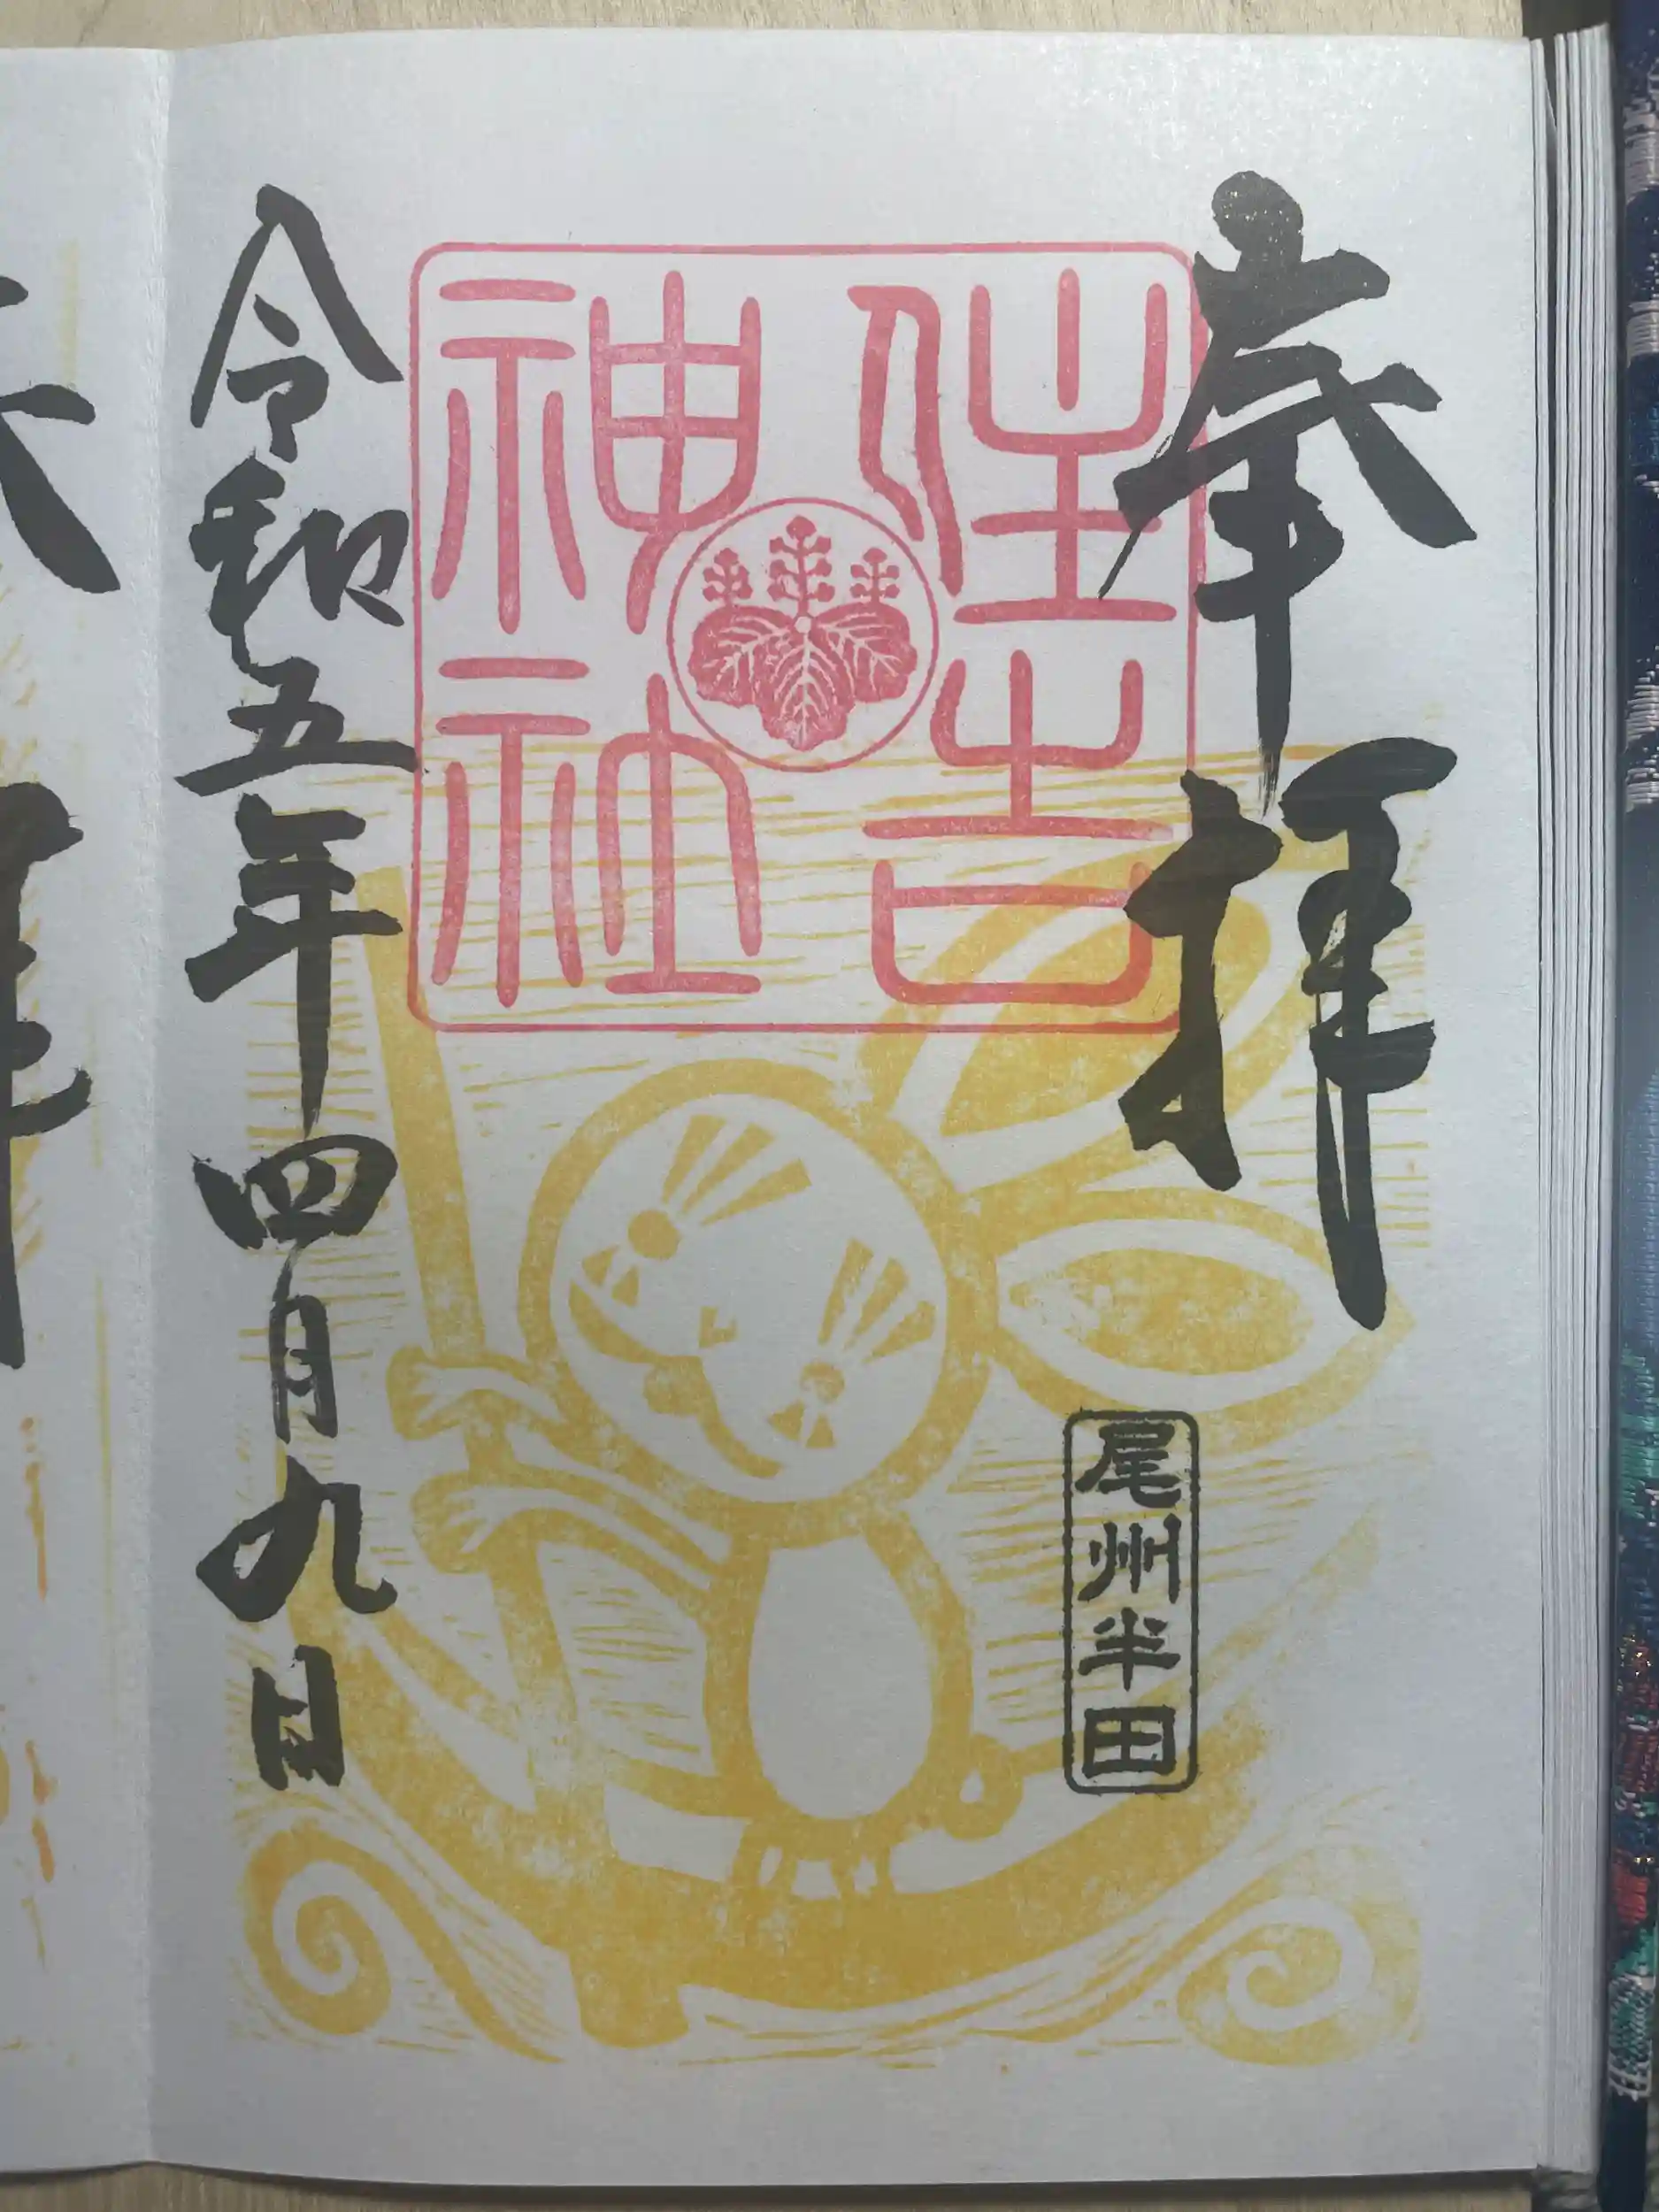 奉拝
住吉
神社
尾州半田
令和五年四月九日